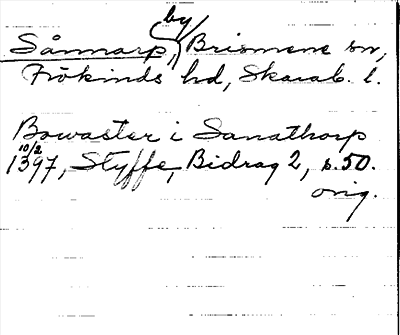 by
Sånnarp, Brismene sn,
Frökinds hd, Skarab. l.
Bowaster i Sanathorp
10/2
1397, Styffe, Bidrag 2, s. 50.
orig.